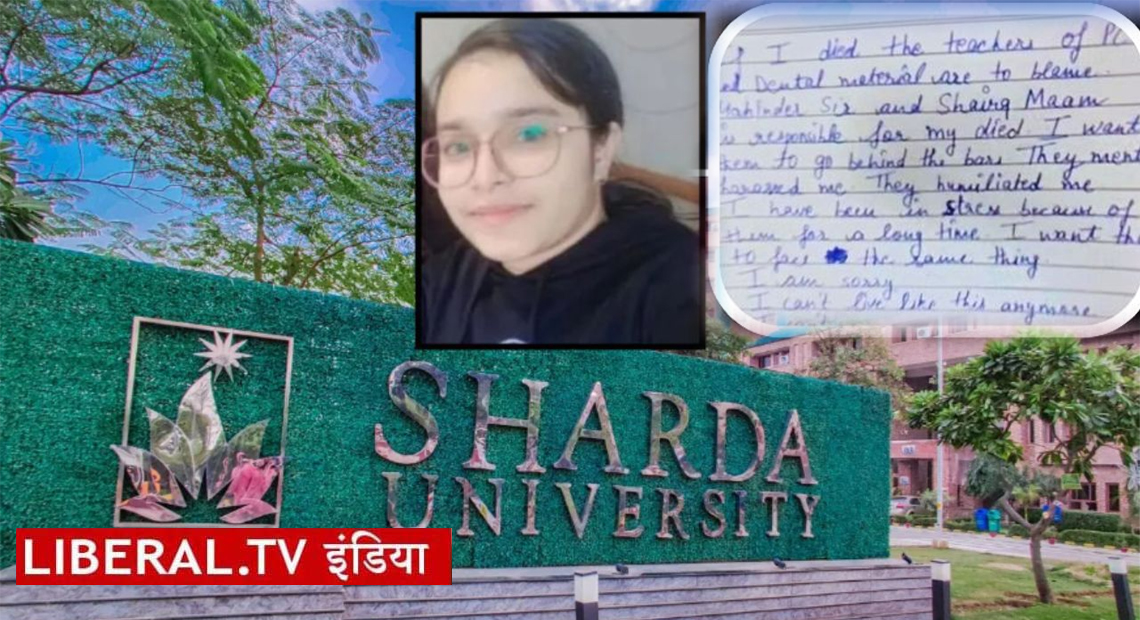 I died the teachers of PC
Dental material are to blame.
Sir and Shairq Maam
responsible for my died I want
to go behind the bars They
me. They humiliated me
I have been in stress because of
them for a long time I want
to face the same thing.
I am sorry
I can't live like this anymore
SHARDA
UNIVERSITY
LIBERAL.TV इंडिया